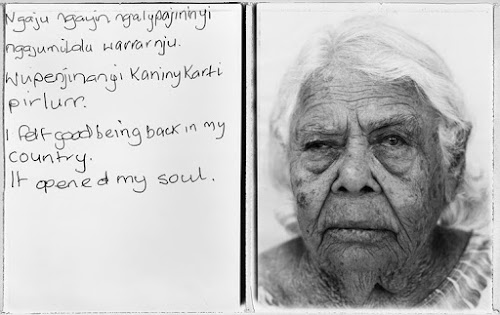 Ngaju ngayin ngalypajininyi
ngajumilalu warrarnju.
Wupenjinanyi Kaninykarti
pirlurr.
I felt good being back in my
country.
It opened my soul.